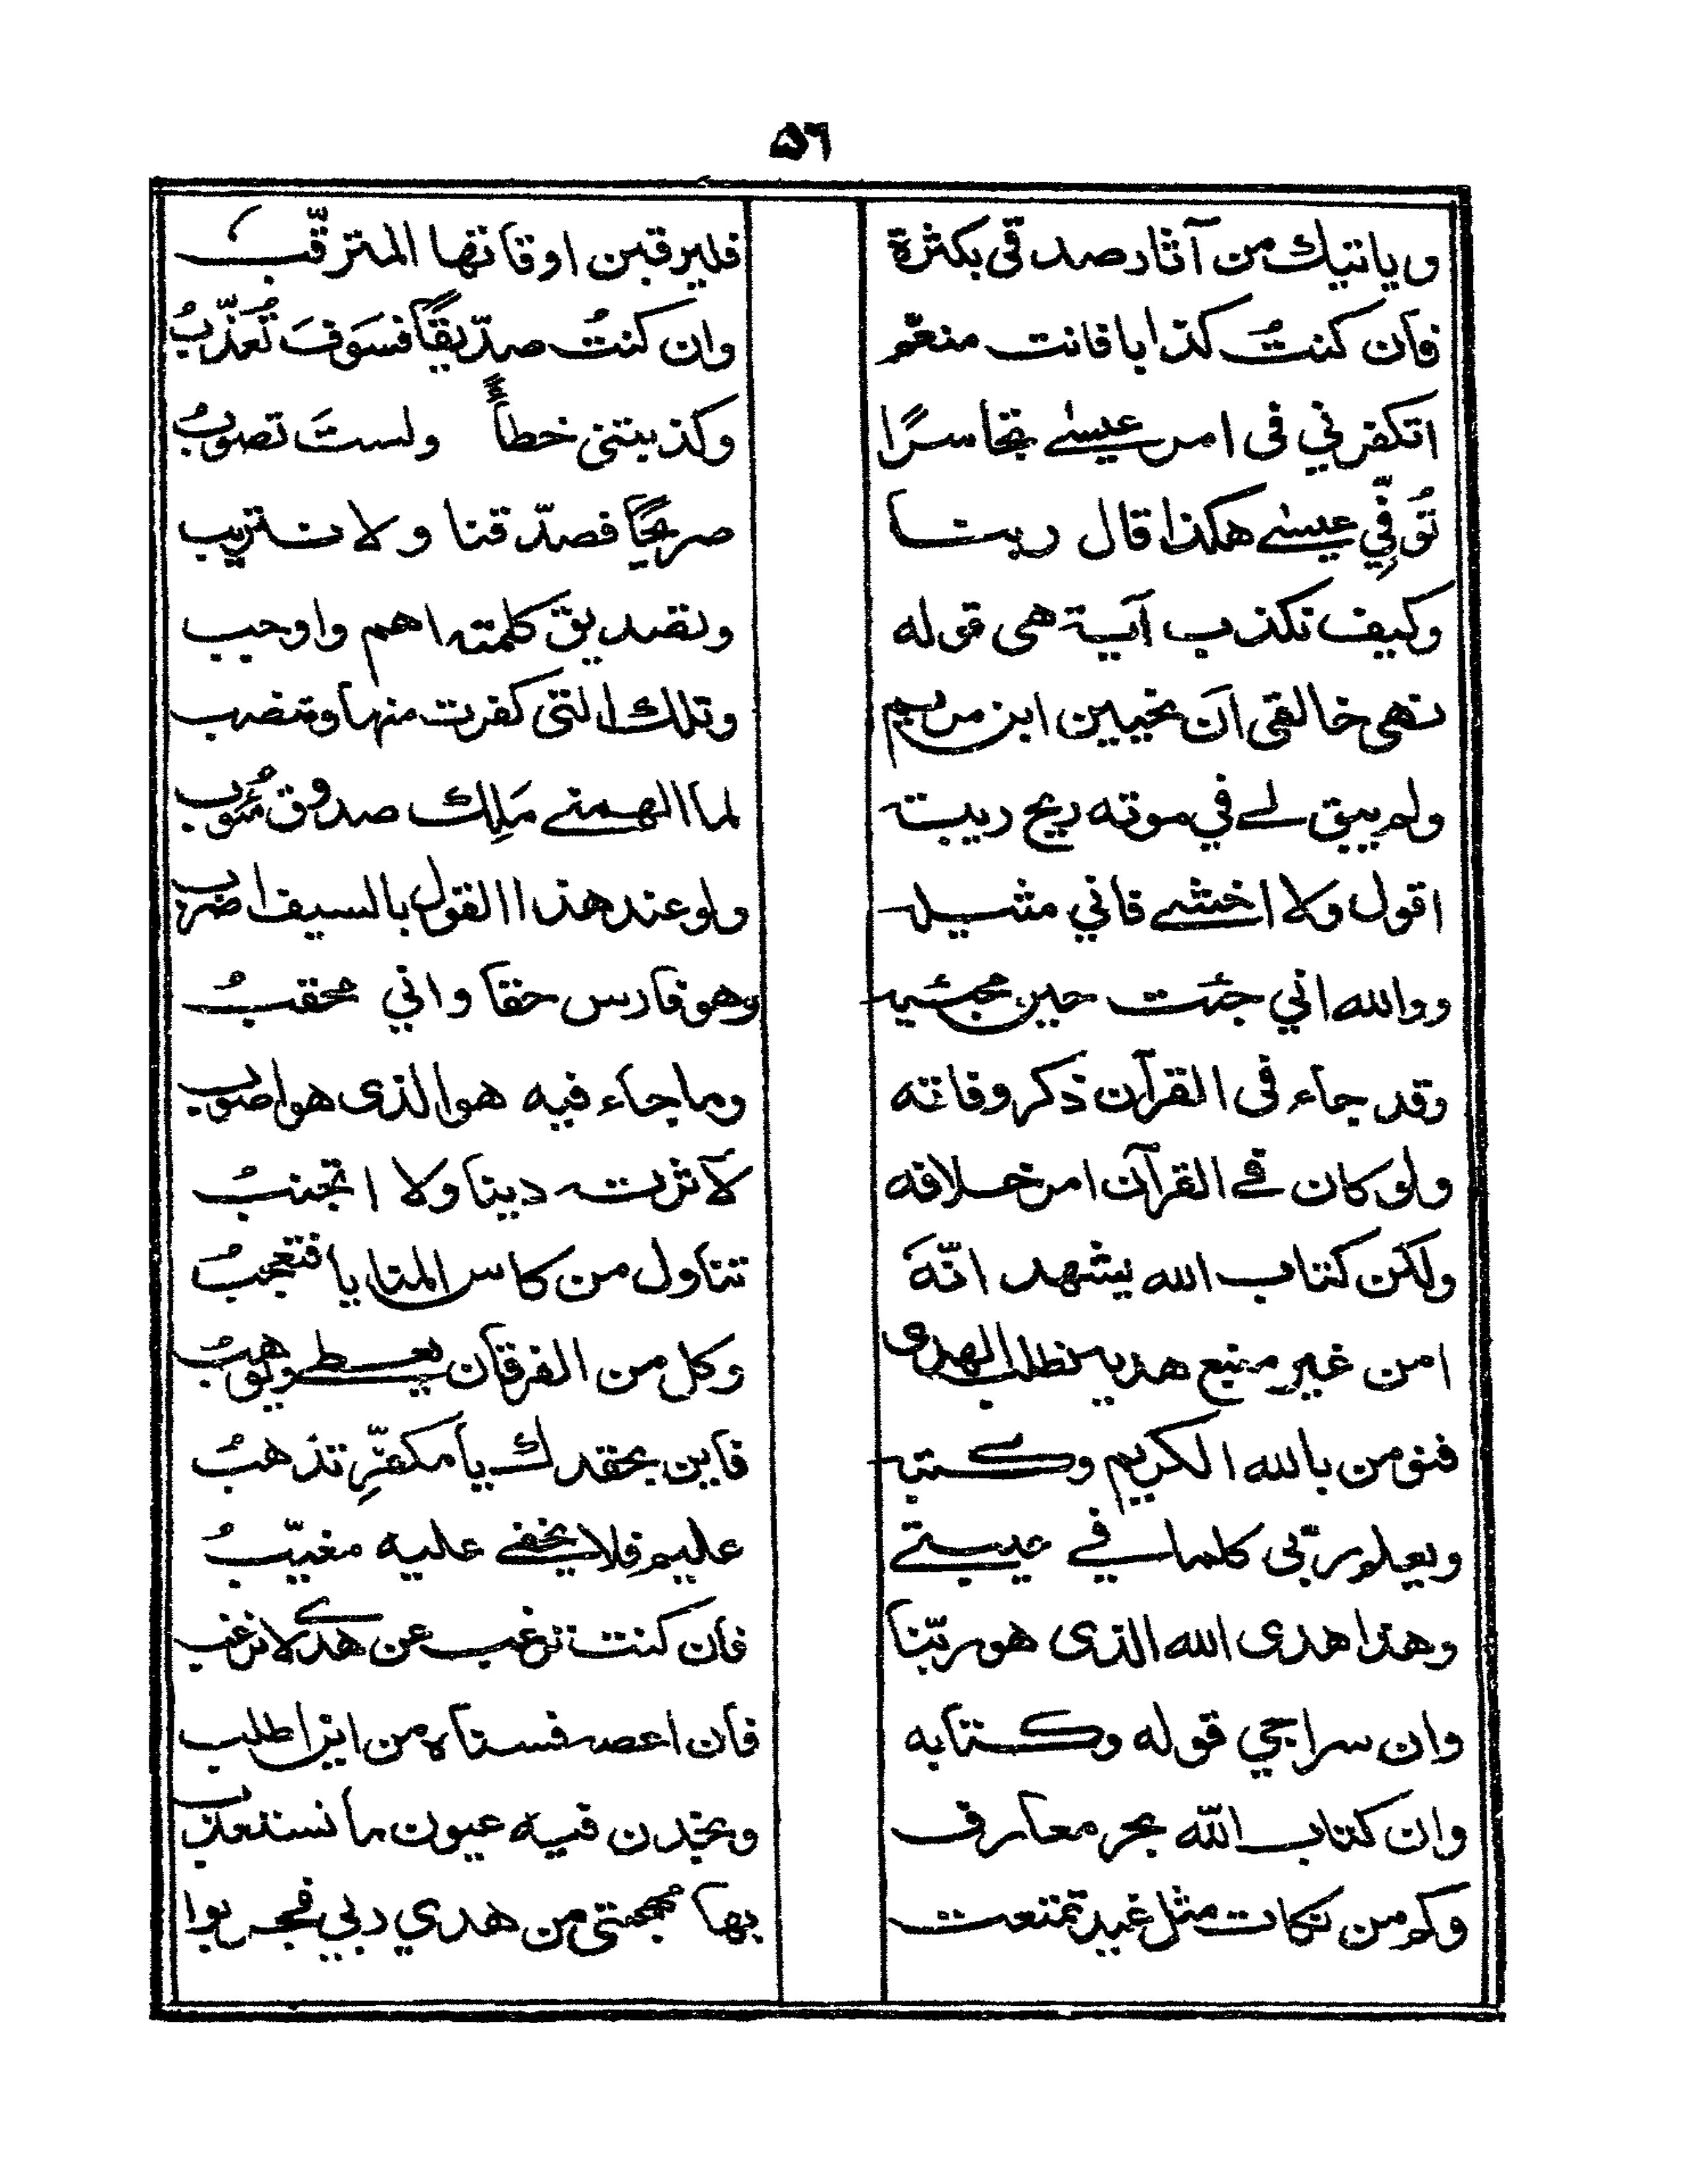 ۵٦
وياتيك من آثار صدقى بكثرة فليرقبن اوقاتها المترقّب
فان كنتُ كذابا فانت منعّم وان كنتُ صدّيقًا فسَوفَ تُعَذَّبُ
اتكفرني فى امر عيسٰے تجاسرًا وكذبتنى خطأً ولستَ تصوبُ
تُوُفِّي عيسٰے هكذا قال ربنا صريحًا فصدّقنا ولا نستريب
وكيف نكذب آية هى قوله وتصديق كلمته اهم واوجب
نهى خالقى ان نحيين ابن مريم وتلك التى كفرت منها وتنصب
ولم يبق لے في موته ريح ريبة لما الهمنے مَلِك صدوق مُئوب
اقول ولا اخشے فاني مثيله ولو عند هذا القول بالسيف اضرب
ووالله اني جئت حين مجئيه وهو فارس حقا واني محقبُ
وقد جاء فى القرآن ذكر وفاته وما جاء فيه هو الذى هو اصوب
ولو كان فے القرآن امر خلافه لآثرت دينا ولا اتجنبُ
ولكن كتاب الله يشهد انّهَ تناول من كاس المنايا فتعجبُ
امن غير منبع هديه نطلب الهدى وكل من الفرقان يعطے ويوهبُ
فنؤمن بالله الكريم وكتبه فاين بحقدك يا مكفّرِ تذهبُ
ويعلم ربّى كلما فے عيبتے عليم فلا يخفے عليه مغيّبُ
وهذا هدى الله الذى هو ربّنا فان كنت ترغب عن هدى لا نرغب
وان سراجي قوله وكتابه فان اعصه فسناه من اين اطلب
وان كتاب اللّه بحر معارف وتجدن فيه عيون ما نستعذب
وكم من نكات مثل غيد تمتعت بها مُهجتى من هدي ربي فجربوا